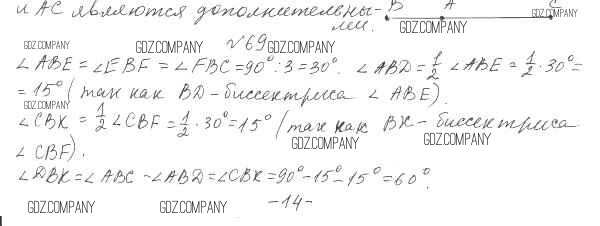 и АС являются дополнительны- B A C
ми. GDZ.COMPANY GDZ.COMPANY
GDZ.COMPANY GDZ.COMPANY №69 GDZ.COMPANY
∠ABE = ∠EBF = ∠FBC = 90° : 3 = 30°. ∠ABD = 1/2 ∠ABE = 1/2 · 30° =
= 15° (так как BD - биссектриса ∠ABE).
GDZ.COMPANY
∠CBK = 1/2 ∠CBF = 1/2 · 30° = 15° (так как BK - биссектриса
GDZ.COMPANY GDZ.COMPANY
∠CBF).
∠DBK = ∠ABC - ∠ABD = ∠CBK = 90° - 15° - 15° = 60°.
GDZ.COMPANY GDZ.COMPANY -14-